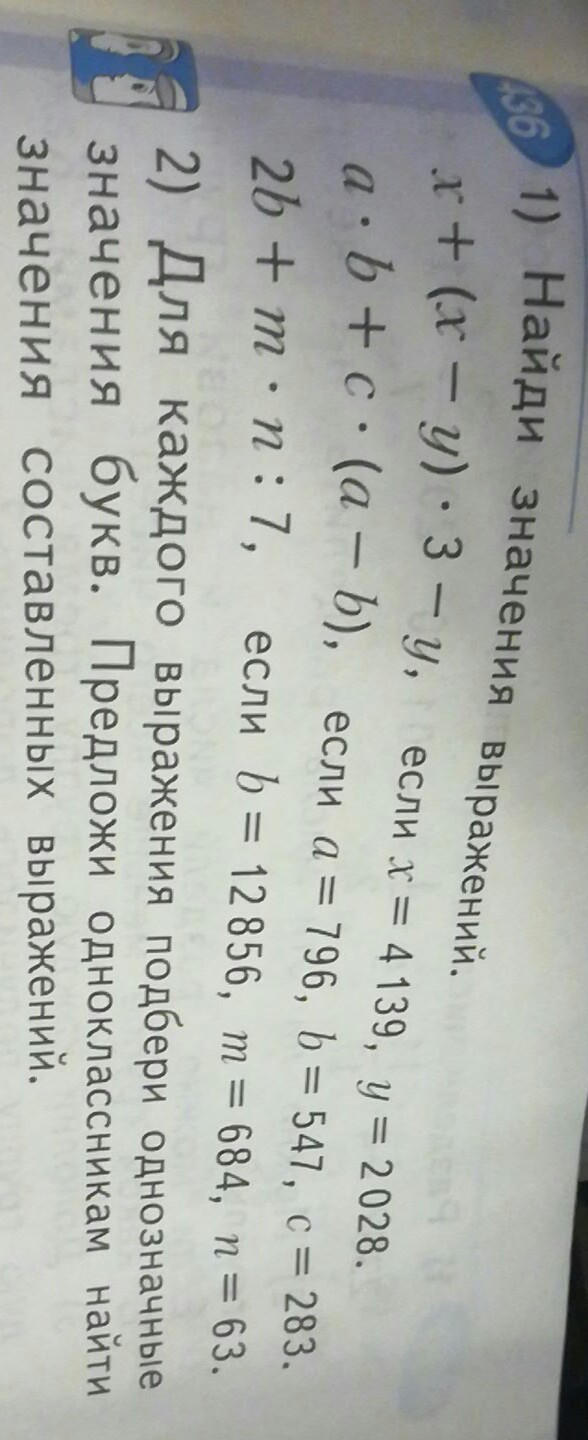 436 1) Найди значения выражений.
x + (x − y) · 3 − y, если x = 4 139, y = 2 028.
a · b + c · (a − b), если a = 796, b = 547, c = 283.
2b + m · n : 7, если b = 12 856, m = 684, n = 63.
2) Для каждого выражения подбери однозначные
значения букв. Предложи одноклассникам найти
значения составленных выражений.